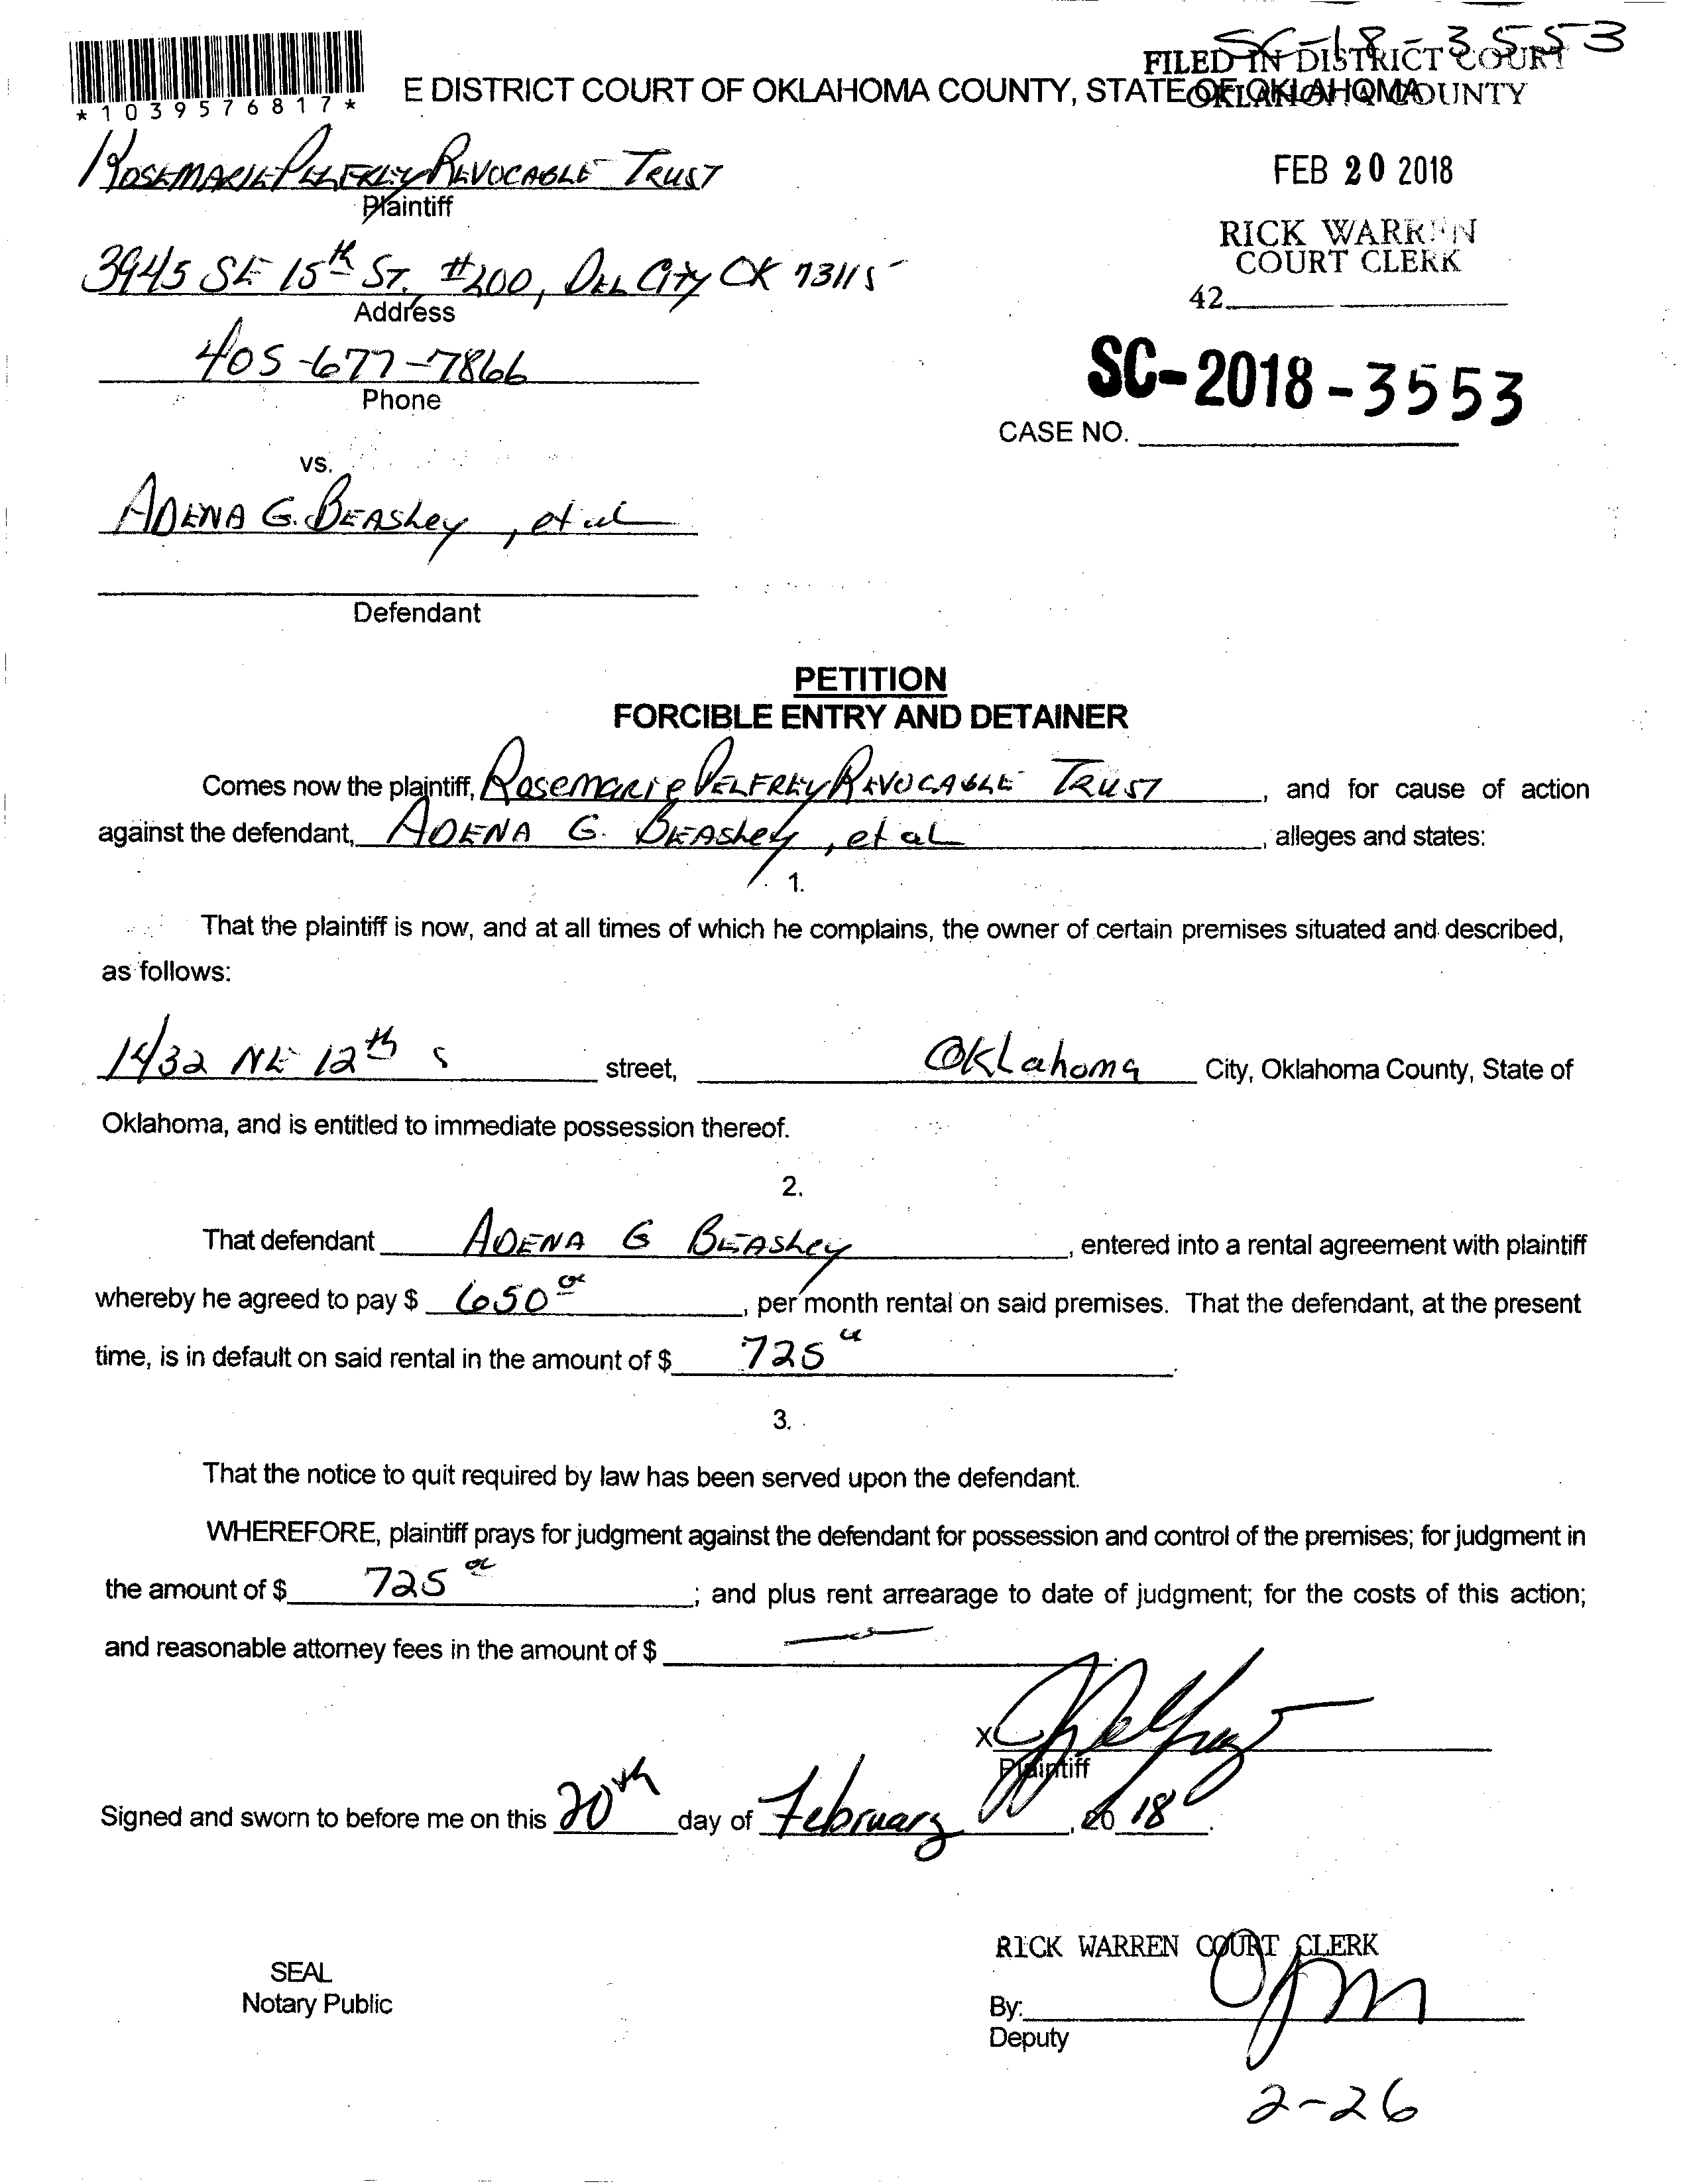 SC-18-3553
FILED IN DISTRICT COURT
OKLAHOMA COUNTY
*1039576817*
E DISTRICT COURT OF OKLAHOMA COUNTY, STATE OF OKLAHOMA
ROSEMARIE PELFREY REVOCABLE TRUST
Plaintiff
FEB 20 2018
RICK WARREN
COURT CLERK
42
3945 SE 15th ST. #200, DEL CITY OK 73115
Address
405-677-7866
Phone
SC-2018-3553
CASE NO.
vs.
ADENA G. BEASLEY, et al
Defendant
PETITION
FORCIBLE ENTRY AND DETAINER
Comes now the plaintiff, Rosemarie PELFREY REVOCABLE TRUST, and for cause of action
against the defendant, ADENA G. BEASLEY, et al, alleges and states:
1.
That the plaintiff is now, and at all times of which he complains, the owner of certain premises situated and described,
as follows:
1432 NE 12th S street, Oklahoma City, Oklahoma County, State of
Oklahoma, and is entitled to immediate possession thereof.
2.
That defendant ADENA G BEASLEY, entered into a rental agreement with plaintiff
whereby he agreed to pay $ 650 00, per month rental on said premises. That the defendant, at the present
time, is in default on said rental in the amount of $ 725 00.
3.
That the notice to quit required by law has been served upon the defendant.
WHEREFORE, plaintiff prays for judgment against the defendant for possession and control of the premises; for judgment in
the amount of $ 725 00; and plus rent arrearage to date of judgment; for the costs of this action;
and reasonable attorney fees in the amount of $
X
Plaintiff
Signed and sworn to before me on this 20th day of February, 2018.
RICK WARREN COURT CLERK
SEAL
Notary Public
By:
Deputy
2-26